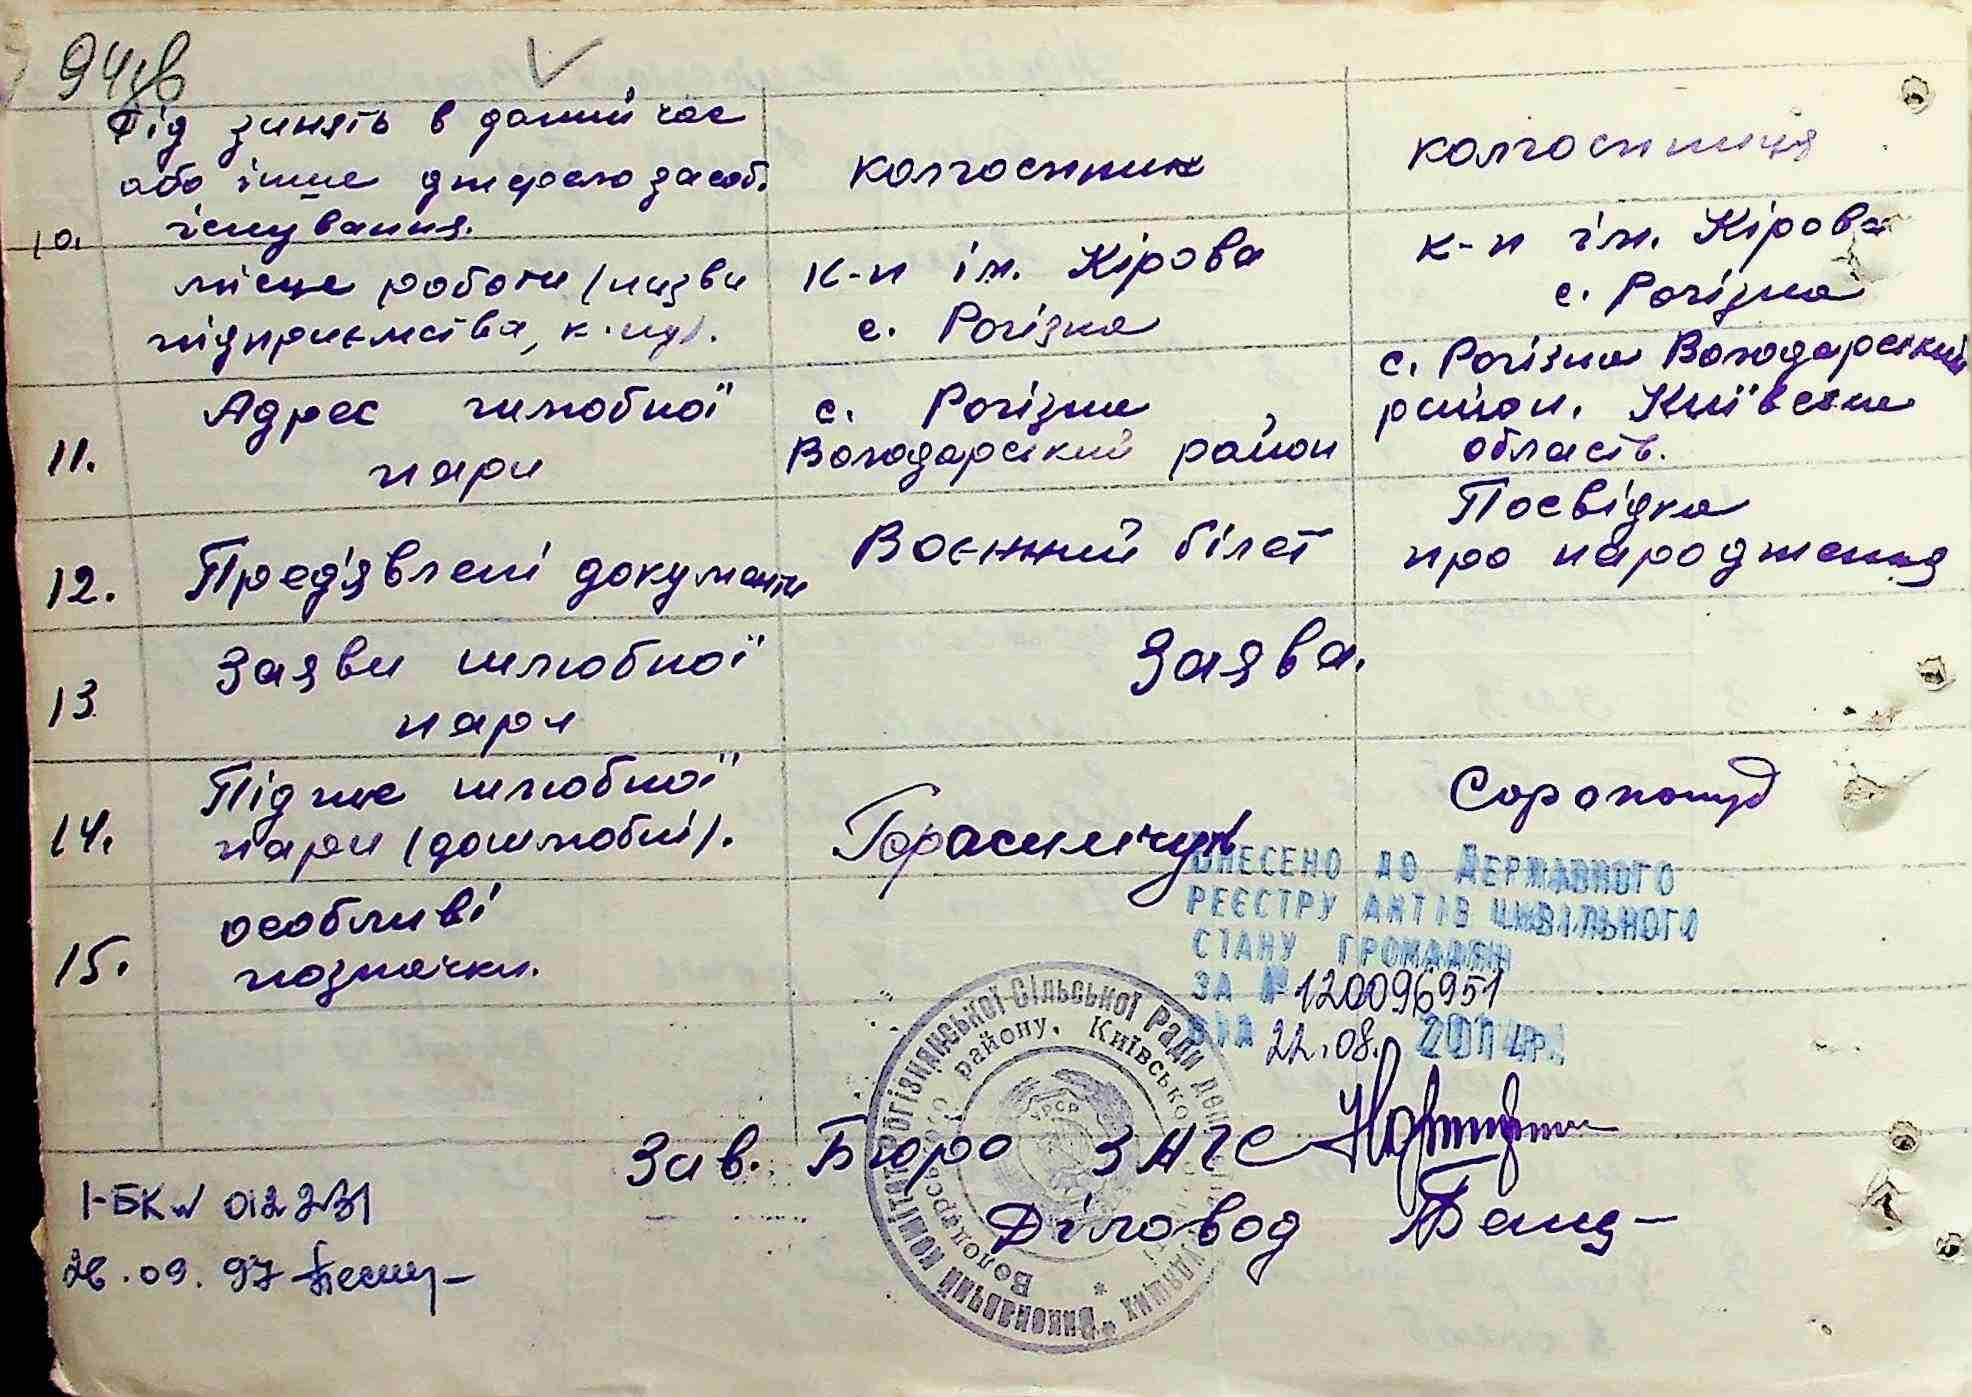 94зв
Рід занять в даний час
або інше джерело засоб.
існування.
10.
місце роботи (назви
підприємства, к-ду).
колгоспник
к-п ім. Кірова
с. Рогізна
колгоспниця
к-п ім. Кірова
с. Рогізна
11.
Адрес шлюбної
пари
с. Рогізна
Володарський район
с. Рогізна Володарський
район. Київська
область.
12.
Пред'явлені документи
Воєнний білет
Посвідка
про народження
13
Заяви шлюбної
пари
Заява.
14.
Підпис шлюбної
пари (дошлюбні).
Герасимчук
Сорокопуд
15.
особливі
позначки.
ВНЕСЕНО ДО ДЕРЖАВНОГО
РЕЄСТРУ АКТІВ ЦИВІЛЬНОГО
СТАНУ ГРОМАДЯН
ЗА № 120096951
ВІД 22.08. 2011 р.
Виконавчий комітет Рогізнянської сільської Ради депутатів трудящих *
Володарського району, Київської області *
УРСР
Зав. Бюро ЗАГС
Діловод
I-БК № 012231
26.09.97